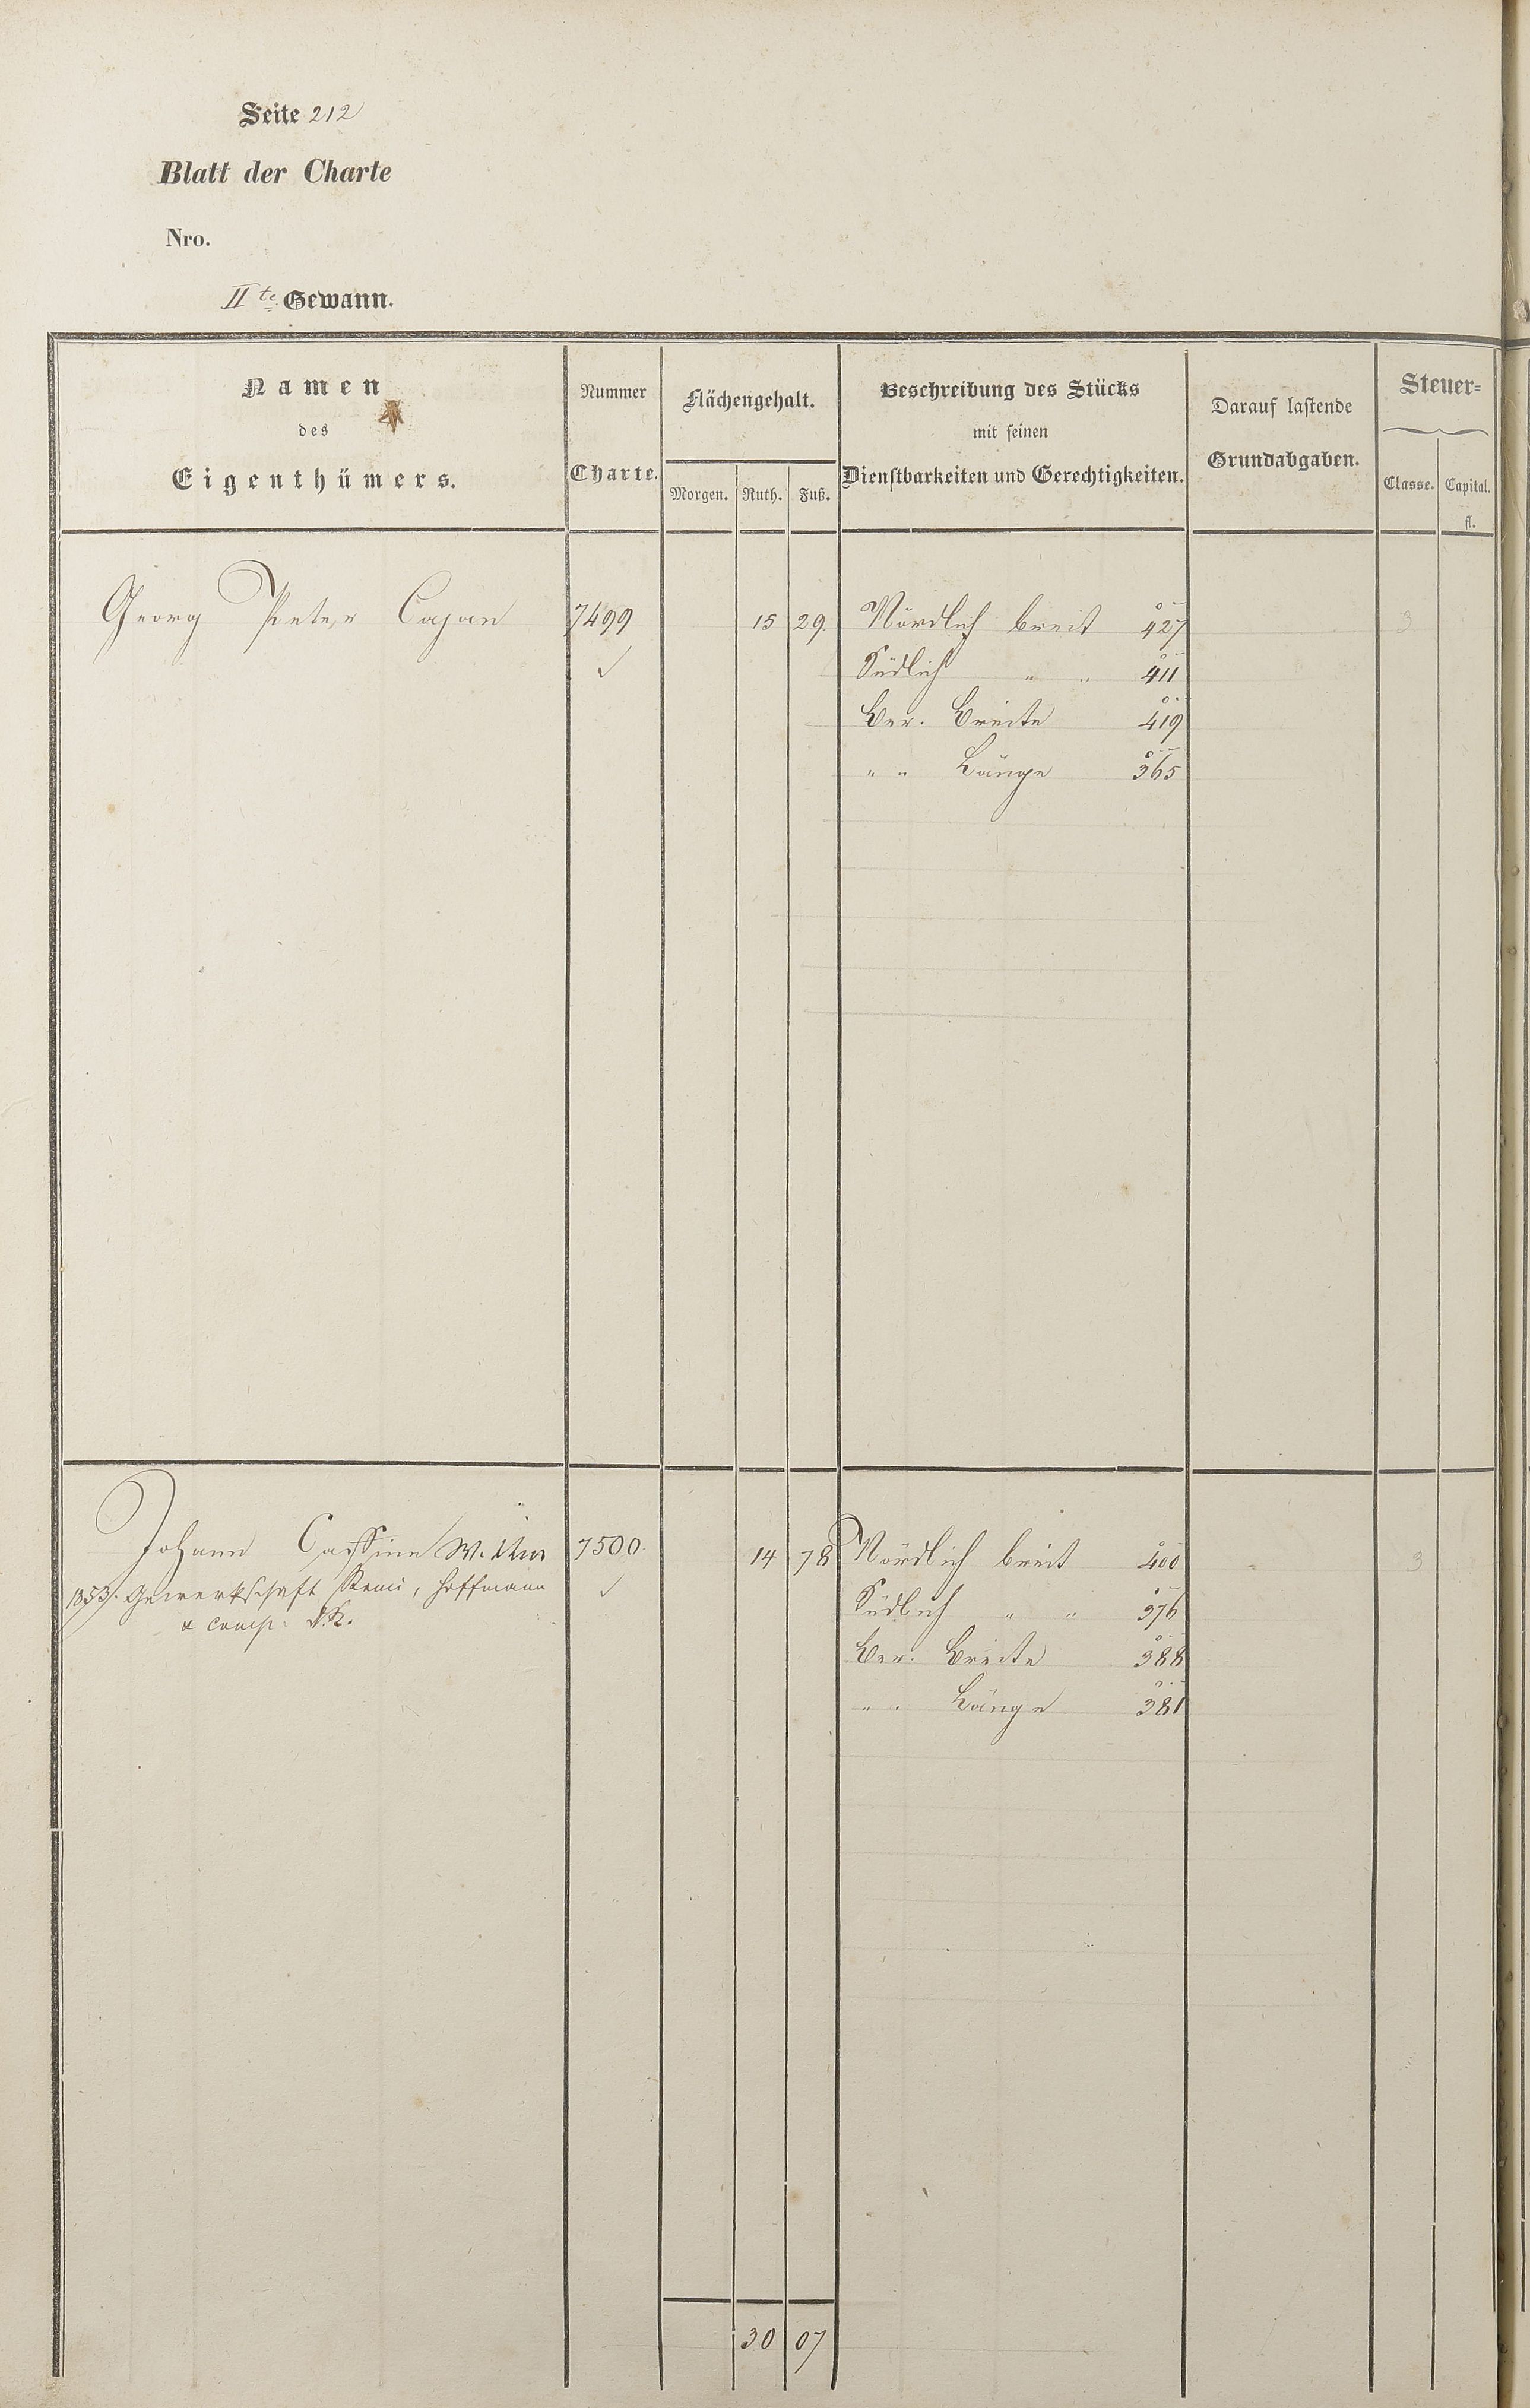 Seite 212
Blatt der Charte
Nro.
IIte Gewann.
Namen
des
Eigenthümers.
Nummer
Charte.
Flächengehalt.
Morgen. Ruth. Fuß.
Beschreibung des Stücks
mit seinen
Dienstbarkeiten und Gerechtigkeiten.
Darauf lastende
Grundabgaben.
Steuer=
Classe. Capital.
fl.
Georg Peter Cajan 7499 15 29. Nördlich breit 427 3
✓ Südlich " " 411
Ber. Breite 419
" " Länge 365
Johann 7500 14 78 Nördlich breit 400 3
1853. Gewerkschaft Remi, Hoffmann ✓
& comp. Südlich " " 376
Ber. Breite 388
" " Länge 381
30 07